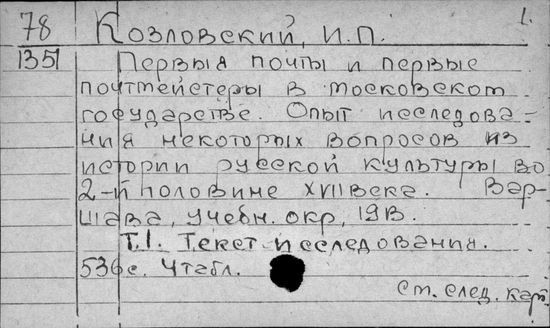 78 Козловский, И.П. 1.
1351 Первыя почты и первые
почтмейстеры в Московском
государстве. Опыт исследова-
ния некоторых вопросов из
истории русской культуры во
2-й половине XVII века. Вар-
шава, учебн. окр, 19В.
Т.1. Текст исследования.
536с. 4 табл.
См. след. карт.